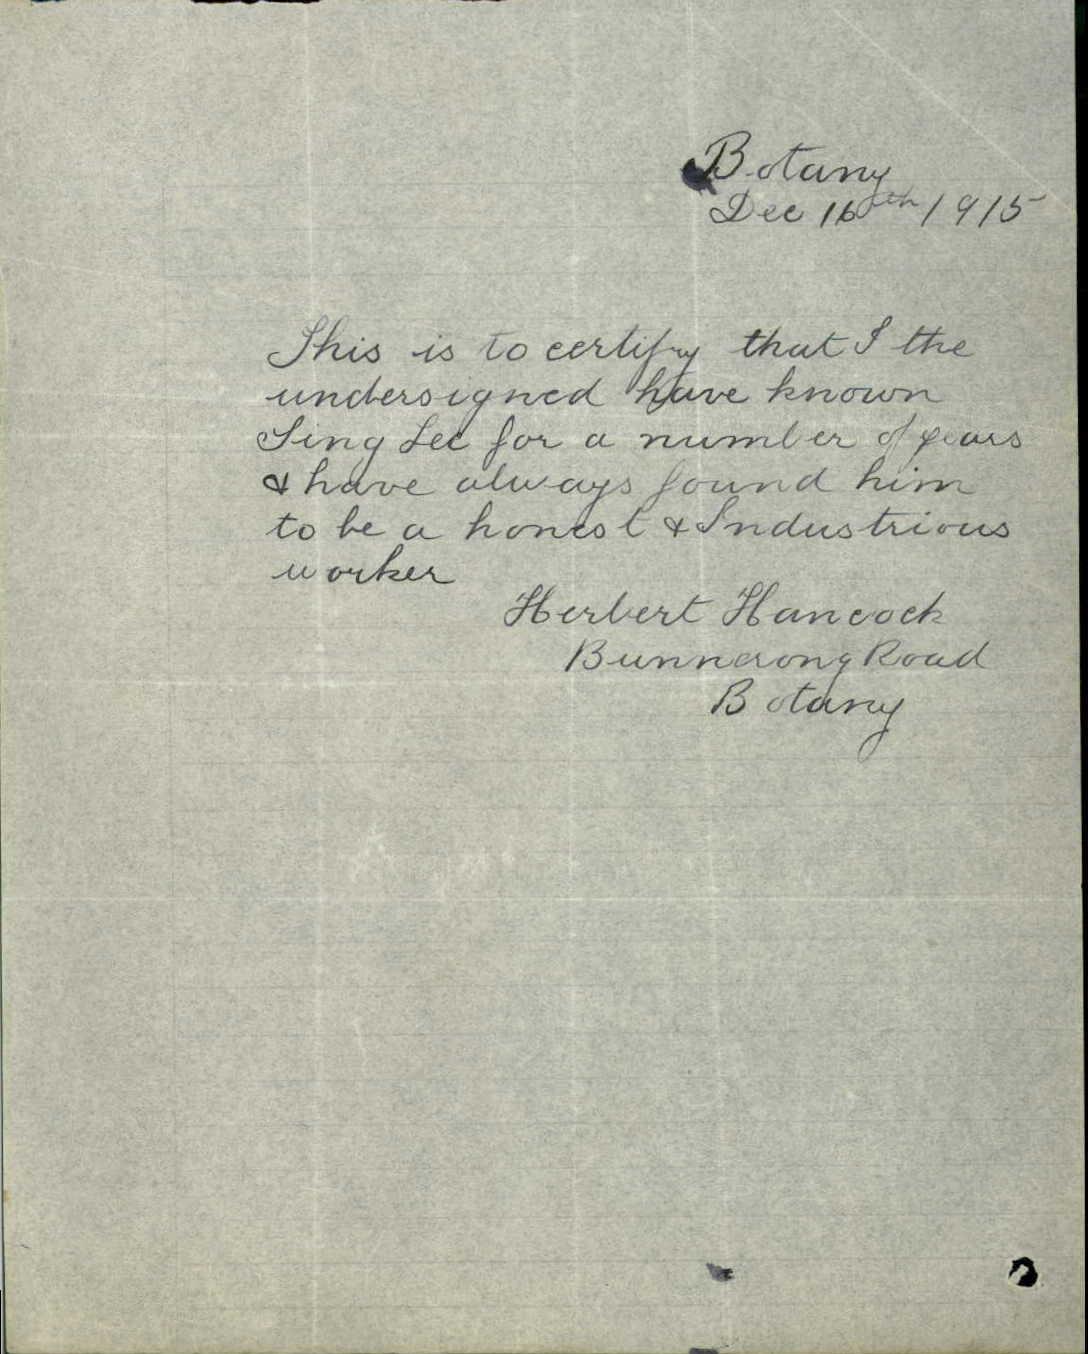 Botany
Dec 16th 1915
This is to certify that I the
undersigned have known
Sing Lee for a number of years
& have always found him
to be a honest & Industrious
worker
Herbert Hancock
Bunnerong Road
Botany